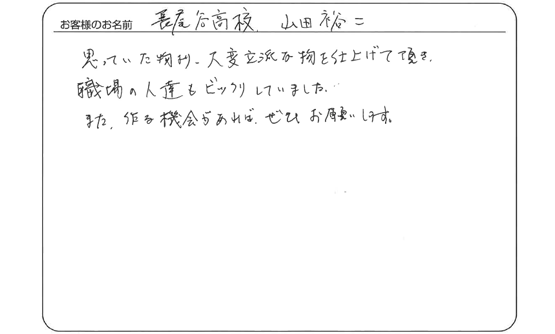 お客様のお名前 長尾谷高校 山田裕二
思っていた物より、大変立派な物を仕上げて頂き、
職場の人達もビックリしていました。
また、作る機会があれば、ぜひお願いします。